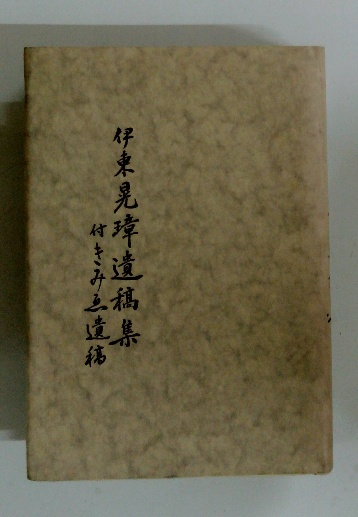 伊東晃璋遺稿集
付きみゑ遺稿